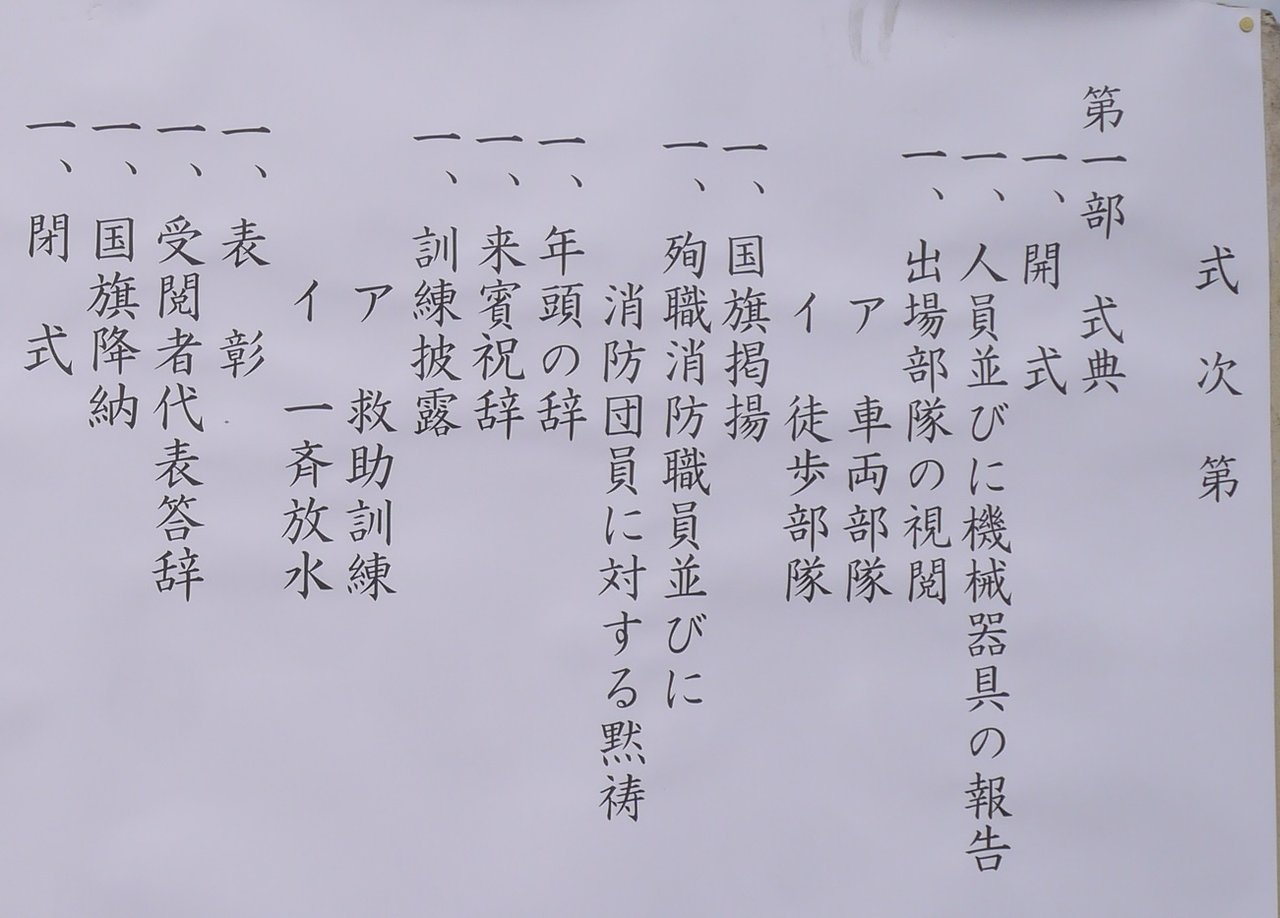 式次第
第一部 式典
一、開式
一、人員並びに機械器具の報告
一、出場部隊の視閲
ア 車両部隊
イ 徒歩部隊
一、国旗掲揚
一、殉職消防職員並びに
消防団員に対する黙祷
一、年頭の辞
一、来賓祝辞
一、訓練披露
ア 救助訓練
イ 一斉放水
一、表彰
一、受閲者代表答辞
一、国旗降納
一、閉式